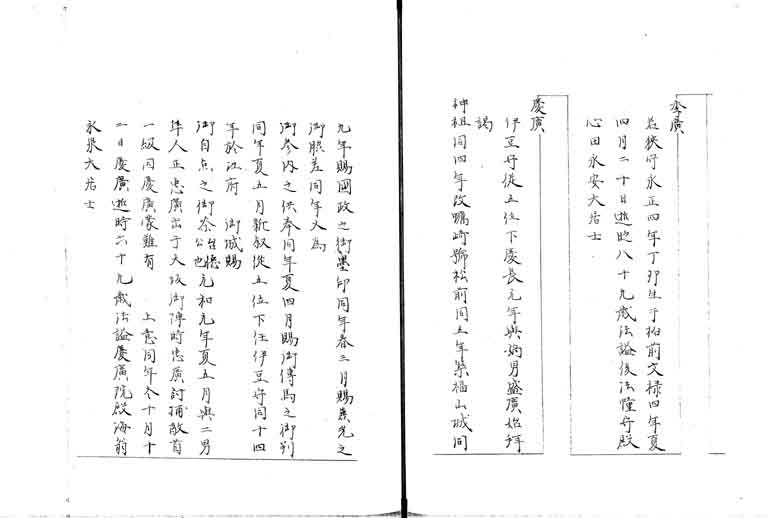 季廣
若狭守永正四年丁卯生于松前文禄四年夏
四月二十日逝時八十九歳法謚後法幢寺殿
心田永安大居士
慶廣
伊豆守從五位下慶長元年與嫡男盛廣始拜
謁
神祖同四年改蠣崎號松前同五年築福山城同
九年賜國政之御墨印同年春三月賜兼光之
御服差同年又為
御參内之供奉同年夏四月賜御傳馬之御判
同年夏五月新叙從五位下任伊豆守同十四
年於江府 御城賜
御自点之御茶台德公也元和元年夏五月與二男
隼人正忠廣出于大坂御陣時忠廣討捕敵首
一級同慶廣蒙難有 上意同年冬十月十
二日慶廣逝時六十九歳法謚慶廣院殿海翁
永泉大居士